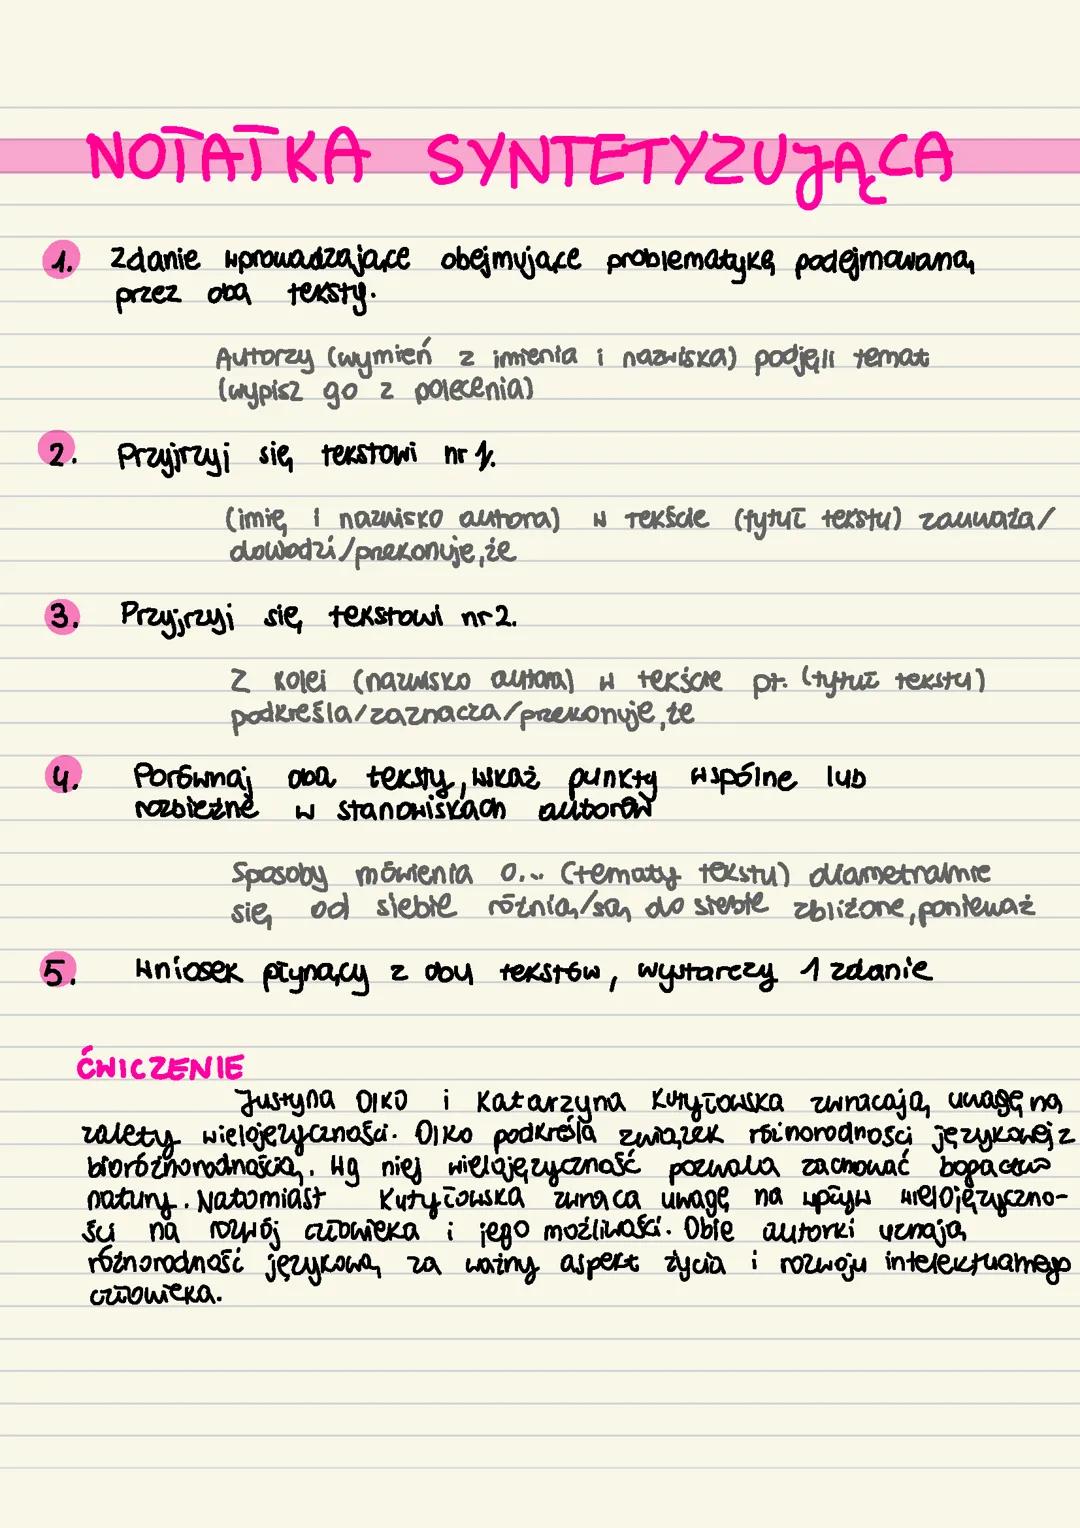 NOTATKA SYNTETYZUJĄCA
1. Zdanie wprowadzające obejmujące problematykę podejmowaną
przez oba teksty.
Autorzy (wymień z imienia i nazwiska) podjęli temat
(wypisz go z polecenia)
2. Przyjrzyj się tekstowi nr 1.
(imię i nazwisko autora) w tekście (tytuł tekstu) zauważa/
dowodzi/przekonuje, że
3. Przyjrzyj się tekstowi nr 2.
Z kolei (nazwisko autora) w tekście pt. (tytuł tekstu)
podkreśla/zaznacza/przekonuje, że
4. Porównaj oba teksty, wskaż punkty wspólne lub
rozbieżne w stanowiskach autorów
Sposoby mówienia o... (tematy tekstu) diametralnie
się od siebie różnią/są do siebie zbliżone, ponieważ
5. Wniosek płynący z obu tekstów, wystarczy 1 zdanie
ĆWICZENIE
Justyna Olko i Katarzyna Kutyłowska zwracają uwagę na
zalety wielojęzyczności. Olko podkreśla związek różnorodności językowej z
bioróżnorodnością. Wg niej wielojęzyczność pozwala zachować bogactwo
natury. Natomiast Kutyłowska zwraca uwagę na wpływ wielojęzyczno-
ści na rozwój człowieka i jego możliwości. Obie autorki uznają
różnorodność językową za ważny aspekt życia i rozwoju intelektualnego
człowieka.